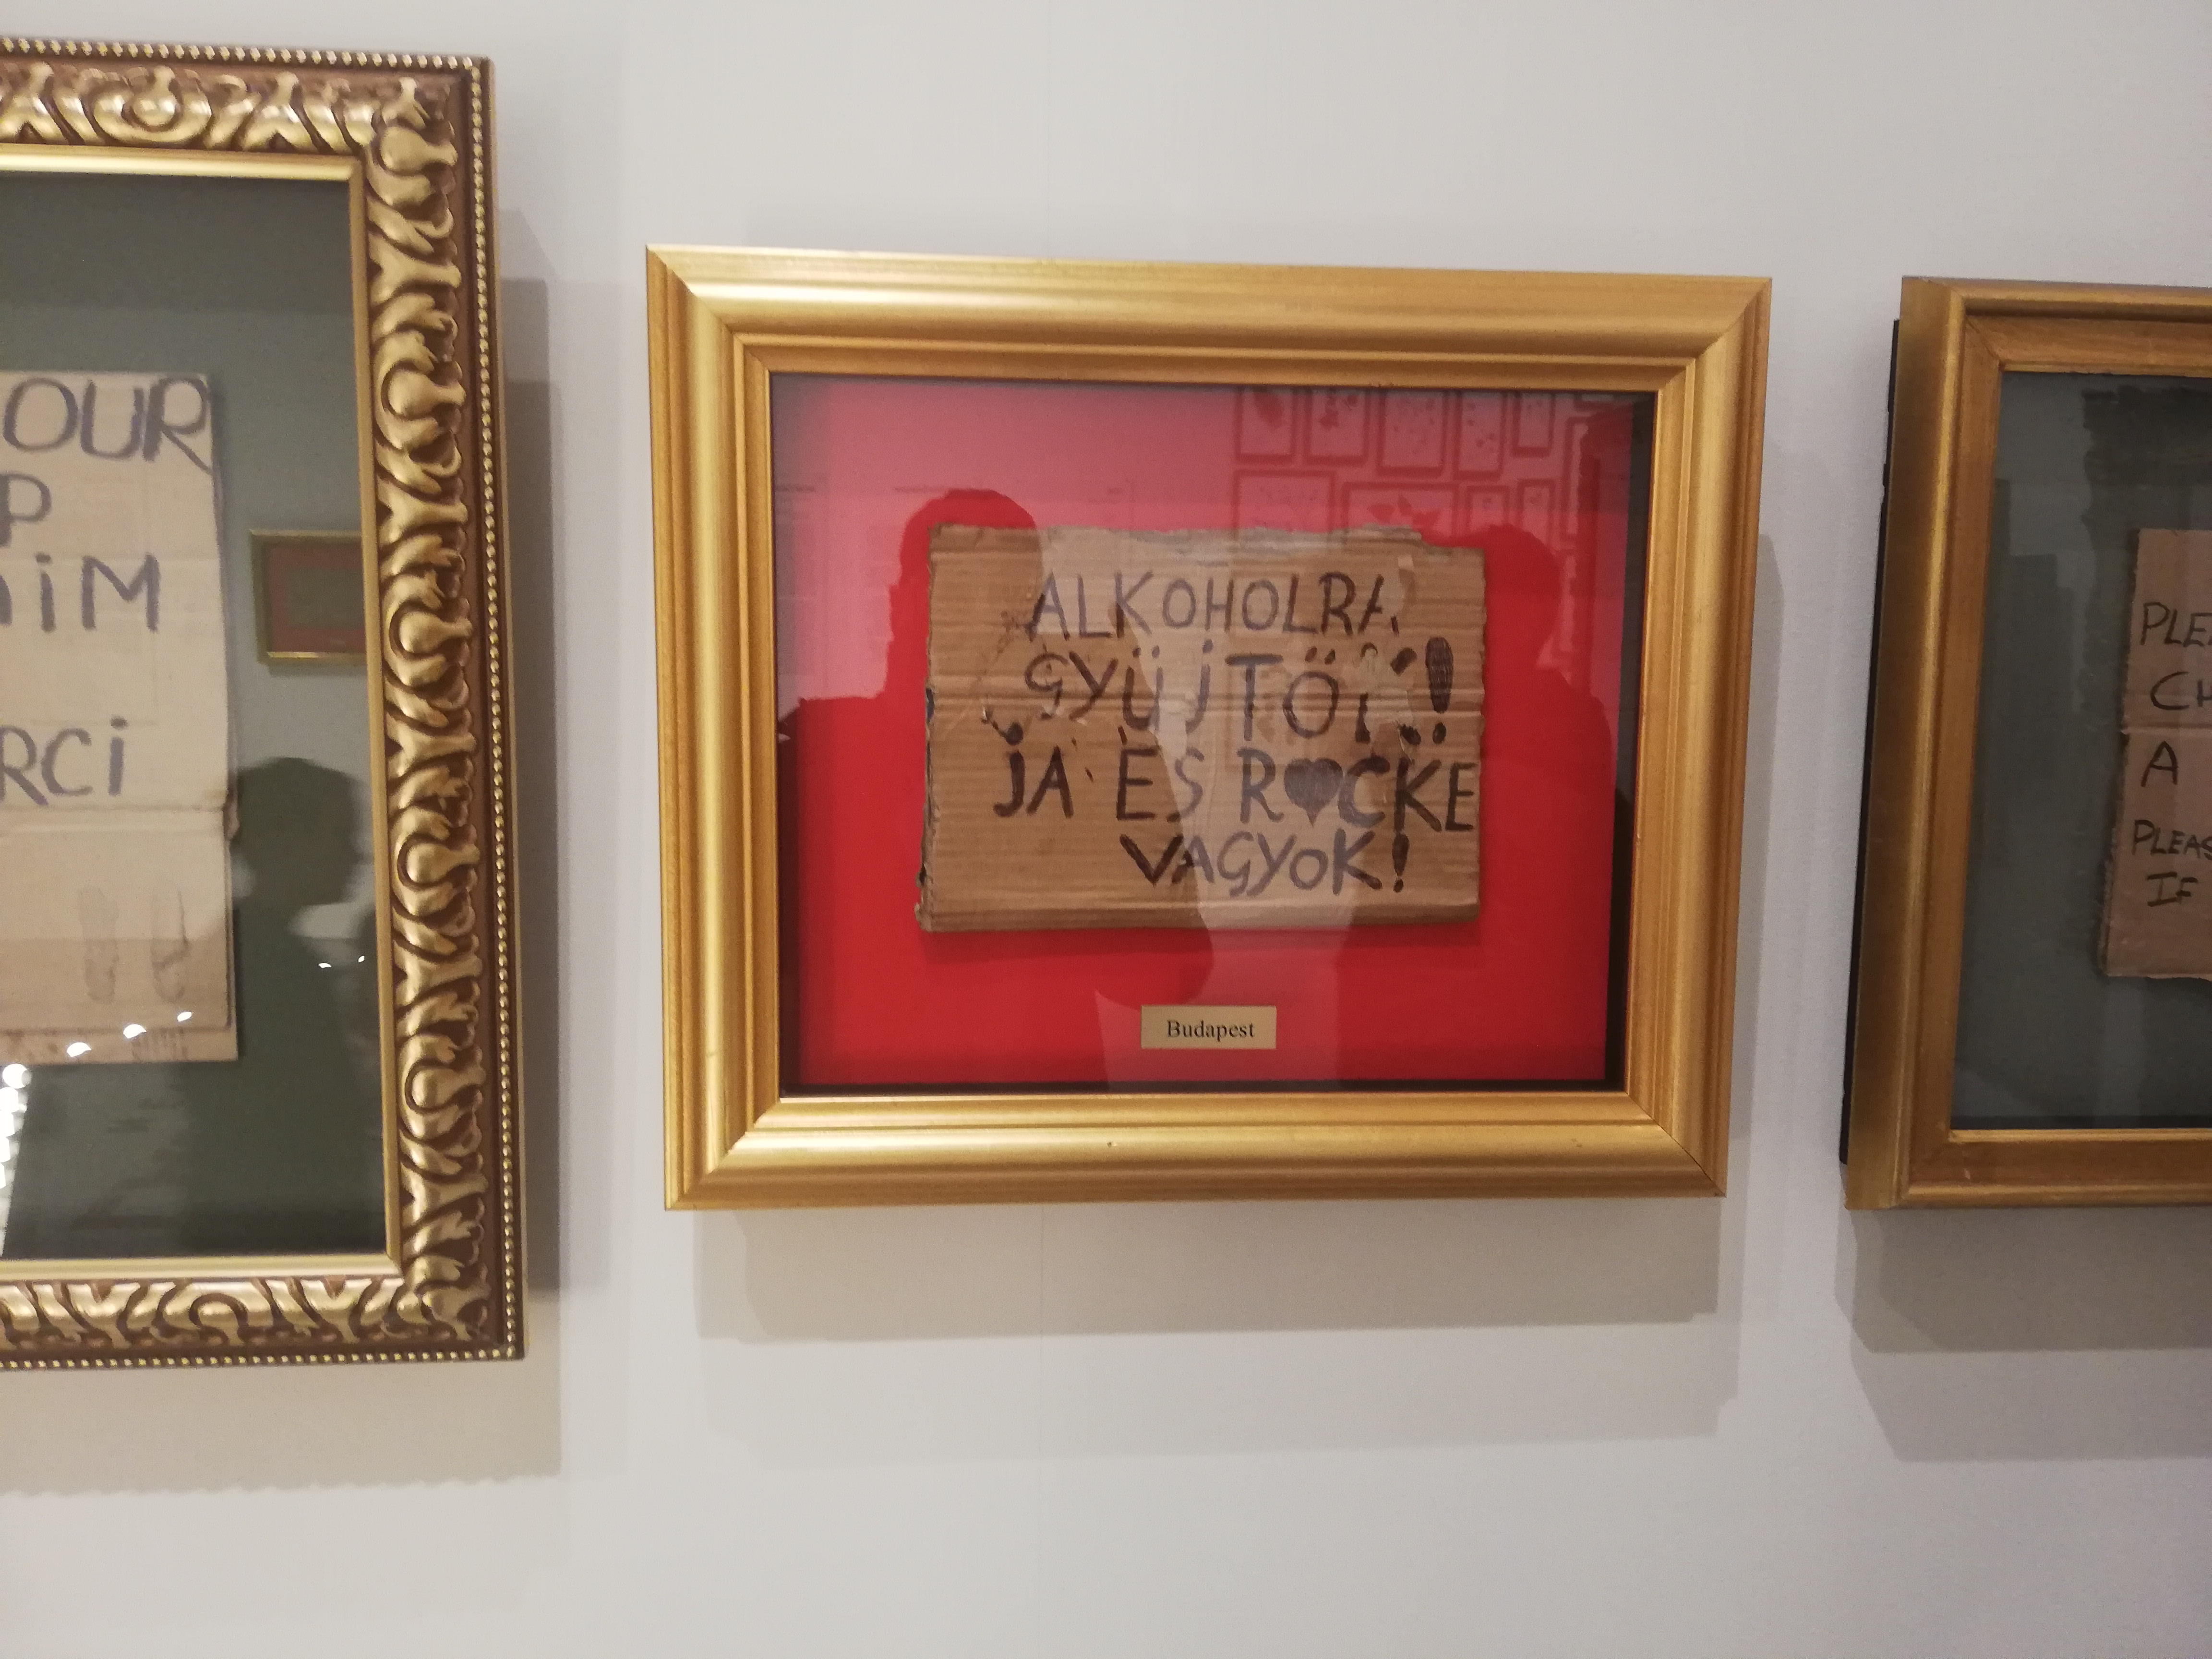 OUR
P
iM
RCi
ALKOHOLRA
GYÜJTÖK!
JA ÉS R♥CKE
VAGYOK!
Budapest
PLE
CH
A
PLEAS
IF